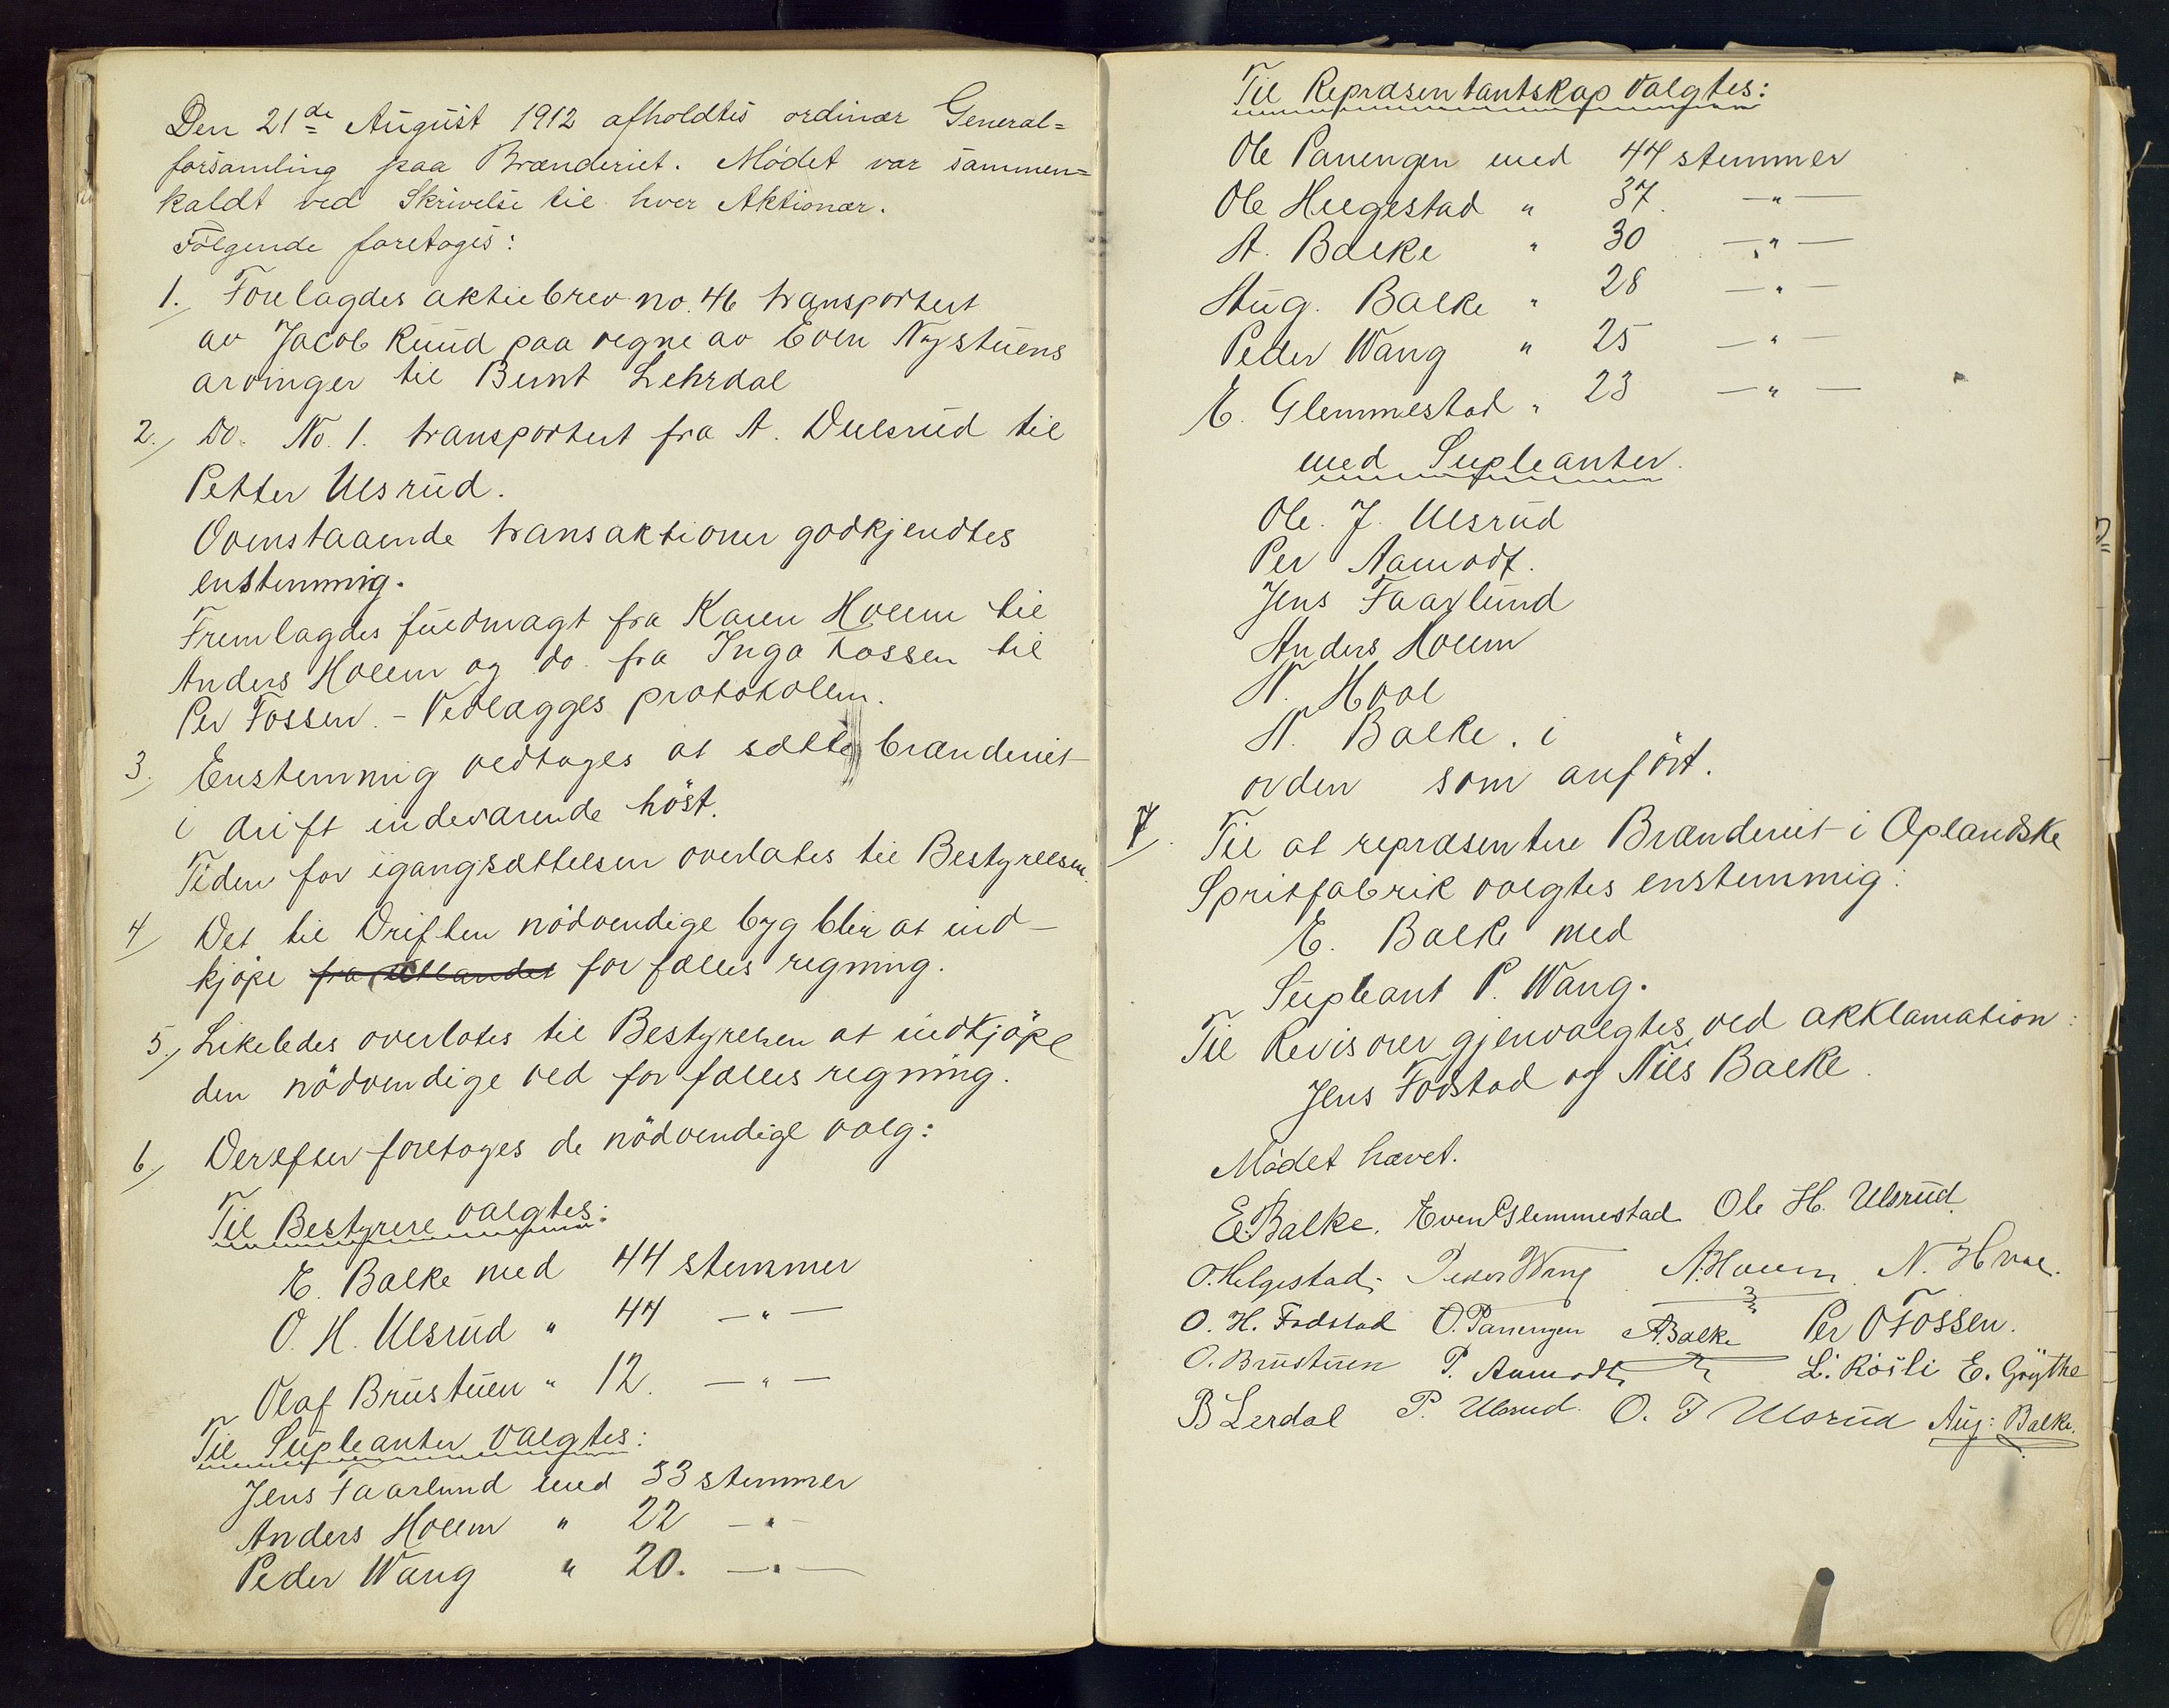 Den 21de August 1912 afholdtes ordinær General=
forsamling paa Brænderiet. Mödet var sammen=
kaldt ved Skrivelse til hver Aktionær.
Følgende foretoges:
1. Forelagdes aktiebrev no. 46 transportert
av Jacob Ruud paa vegne av Even Nystuens
arvinger til Bernt Lehrdal
2. Do. No. 1. transportert fra A. Dulsrud til
Petter Ulsrud.
Ovenstaaende transaktioner godkjendtes
enstemmig.
Fremlagdes fuldmagt fra Karen Holem til
Anders Hoelm og do. fra Inga Fossen til
Per Fossen. - Vedlægges protokolen.
3. Enstemmig vedtoges at sætte brænderiet
i drift indeværende höst.
Tiden for igangsættelsen overlates til Bestyrelsen.
4 Det til Driften nödvendige byg blir at ind-
kjöpe fra Utlandet for fælles regning.
5. Likeledes overlotes til Bestyrelsen at indkjöpe
den nödvendige ved for fælles regning.
6 Derefter foretoges de nödvendige valg:
Til Bestyrere valgtes:
E. Balke med 44 stemmer
O. H. Ulsrud " 44 — " —
Olaf Brustuen " 12. — " —
Til Supleanter Valgtes:
Jens Faarlund med 33 stemmer
Anders Hoelm " 22 — " —
Peder Wang " 20. — " —
Til Repræsentantskap Valgtes:
Ole Panengen med 44 stemmer
Ole Helgestad " 37. — " —
A. Balke " 30 — " —
Aug. Balke " 28 — " —
Peder Wang " 25 — " —
E. Glemmestad " 23 — " —
med Supleanter.
Ole. J. Ulsrud
Per Aamodt.
Jens Faarlund
Anders Hoelm
N. Hval
N. Balke. i
orden som anfört.
7. Til at repræsentere Brænderiet i Oplandske
Spritfabrik valgtes enstemmig:
E. Balke med
Supleant P. Wang.
Til Revisorer gjenvalgtes ved akklamation:
Jens Fodstad og Nils Balke.
Mödet hævet.
E. Balke. Even Glemmestad Ole H. Ulsrud.
O. Helgestad. Peder Wang A. Hoelm. N. Hval.
O. H. Fodstad O. Panengen A. Balke Per O Fossen.
O. Brustuen P. Aamodt L. Rösli E. Gröythe
B Lerdal P. Ulsrud. O. J Ulsrud Aug: Balke.